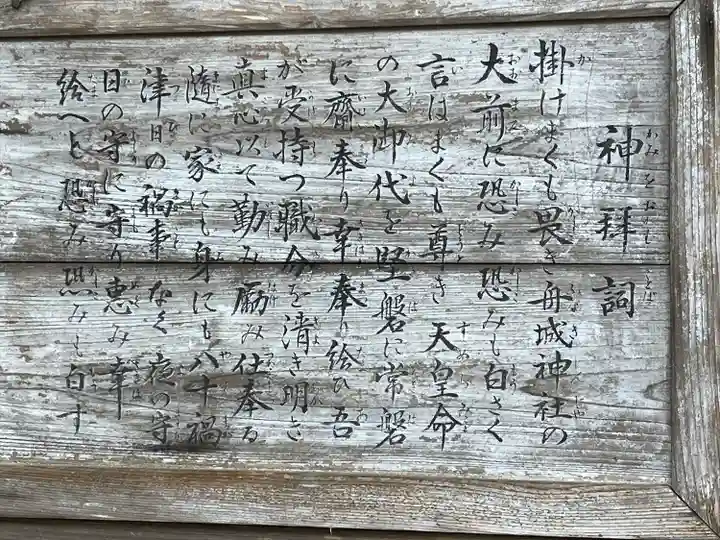 神拝詞
掛けまくも畏き舟城神社の
大前に恐み恐みも白さく
言はまくも尊き 天皇命
の大御代を堅磐に常磐
に齋奉り幸奉り給ひ吾
が受持つ職命を清き明き
眞心以て勤み励み仕奉る
隨に家にも身にも八十禍
津日の禍事なく夜の守
日の守に守り恵み幸
給へと恐み恐みも白す